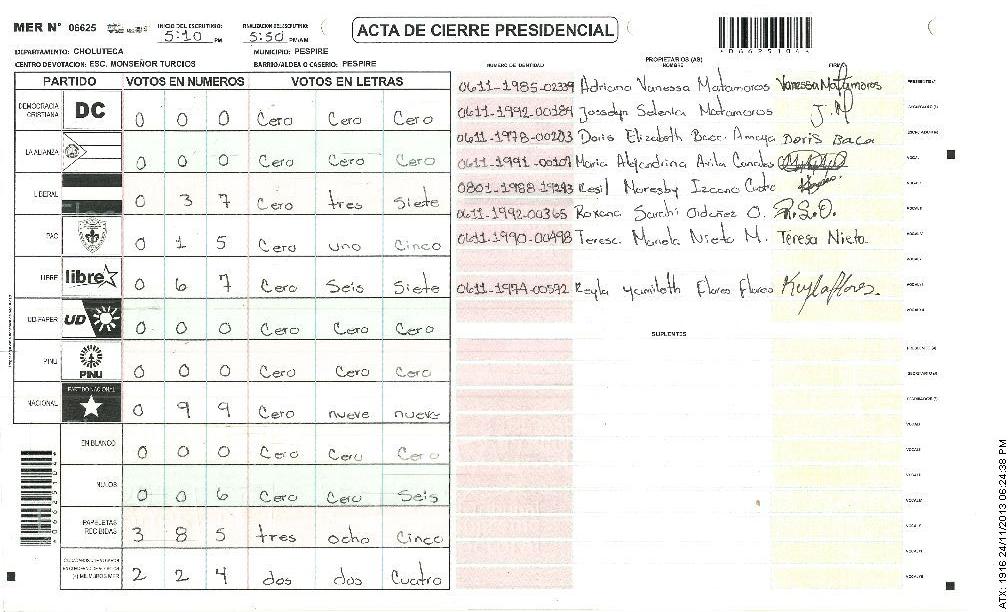 MER N° 06625 INICIO DEL ESCRUTINIO: 5:10 PM FINALIZACION DEL ESCRUTINIO: 5:50 PM/AM
ACTA DE CIERRE PRESIDENCIAL
DEPARTAMENTO: CHOLUTECA MUNICIPIO: PESPIRE
CENTRO DE VOTACION: ESC. MONSEÑOR TURCIOS BARRIO/ALDEA O CASERIO: PESPIRE
PARTIDO VOTOS EN NUMEROS VOTOS EN LETRAS
DEMOCRACIA CRISTIANA DC 0 0 0 Cero Cero Cero
LA ALIANZA 0 0 0 Cero Cero Cero
LIBERAL 0 3 7 Cero tres Siete
PAC 0 1 5 Cero uno Cinco
LIBRE libre 0 6 7 Cero Seis Siete
UD-FAPER UD 0 0 0 Cero Cero Cero
PINU PINU 0 0 0 Cero Cero Cero
NACIONAL PARTIDO NACIONAL 0 9 9 Cero nueve nueve
EN BLANCO 0 0 0 Cero Cero Cero
NULOS 0 0 6 Cero Cero Seis
PAPELETAS RECIBIDAS 3 8 5 tres ocho Cinco
2 2 4 dos dos Cuatro
NUMERO DE IDENTIDAD PROPIETARIOS (AS) NOMBRE FIRMA
0611-1985-02339 Adriana Vanessa Matamoros Vanessa Matamoros
0611-1992-00184 Josselyn Selenia Matamoros J.M
0611-1978-00203 Doris Elizabeth Baca Amaya Doris Baca
0611-1991-00107 Maria Alejandrina Avila Canales
0801-1988-19293 Resil Moresby Izcano
0611-1992-00365 Roxana Sarahi Ordoñez O. R.S.O.
0611-1990-00498 Teresa Mariela Nieto M. Teresa Nieto
0611-1974-00592 Keyla Yamileth Flores Flores Keylaflores.
SUPLENTES
ATX: 1916 24/11/2013 06:24:38 PM